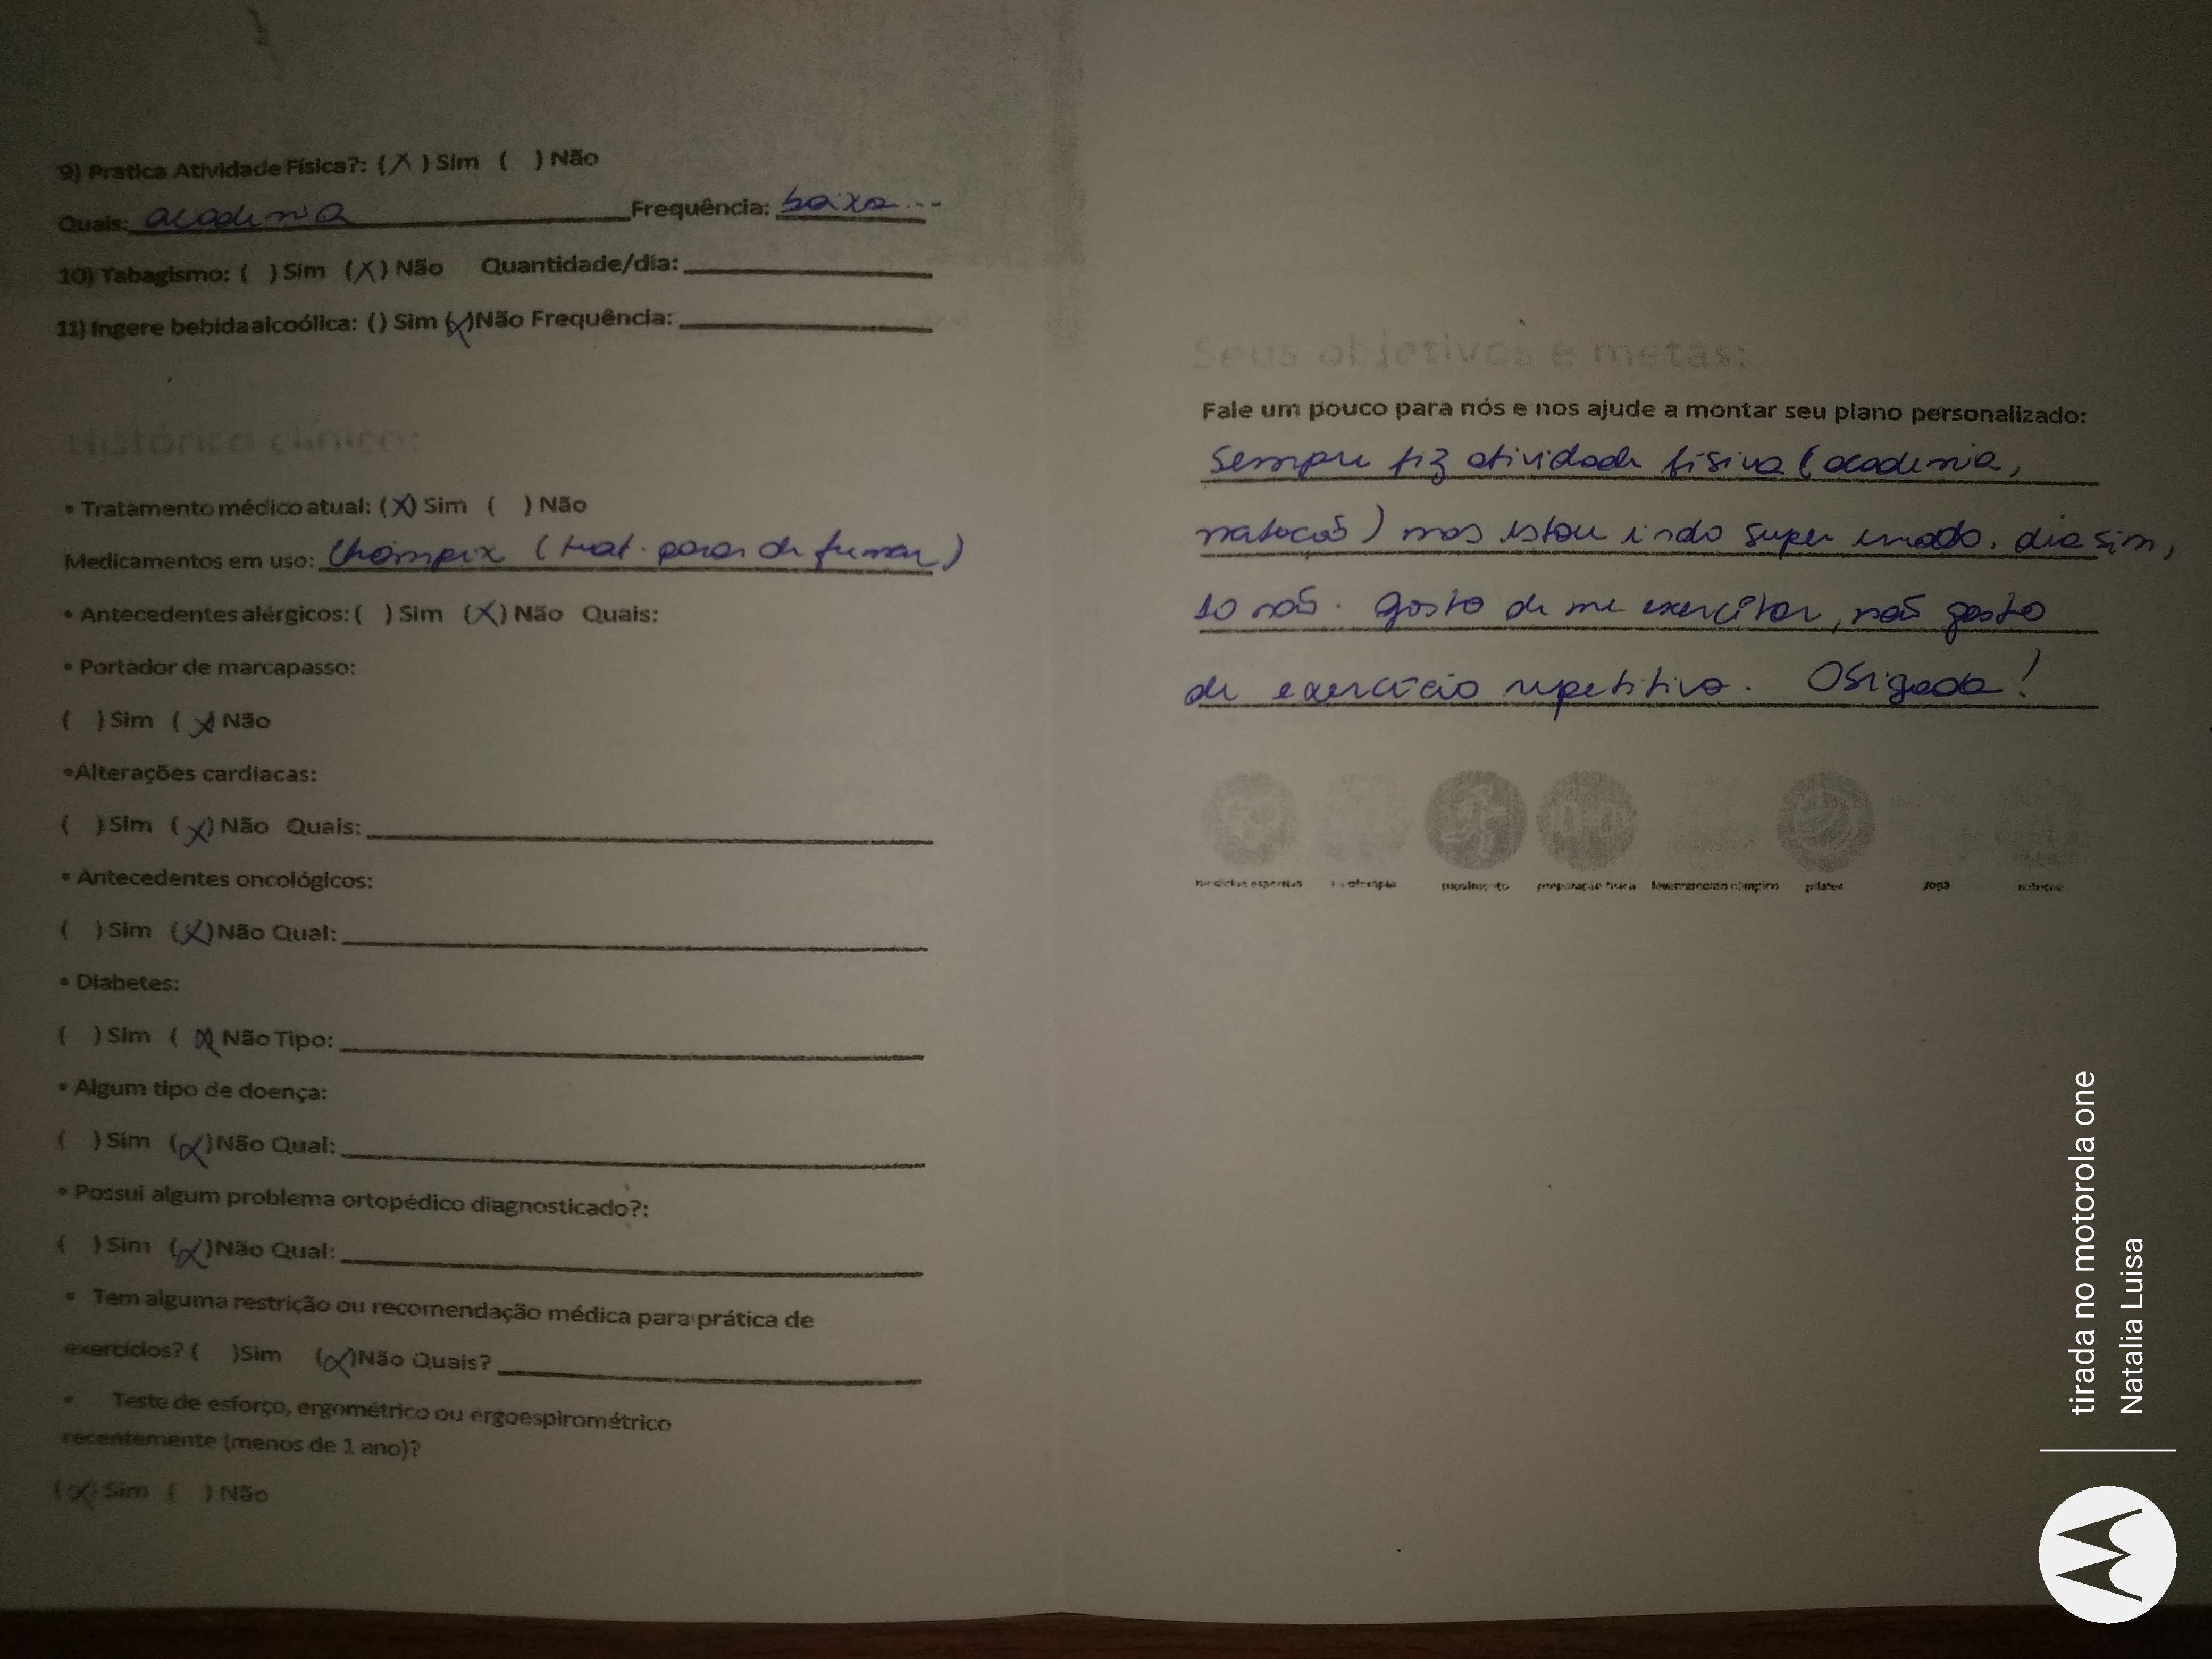 9) Pratica Atividade Física?: (X) Sim ( ) Não
Quais: academia Frequência: baixa...
10) Tabagismo: ( ) Sim (X) Não Quantidade/dia:
11) Ingere bebida alcoólica: () Sim (X) Não Frequência:
Histórico clínico:
• Tratamento médico atual: (X) Sim ( ) Não
Medicamentos em uso: Champix (trat. parar de fumar)
• Antecedentes alérgicos: ( ) Sim (X) Não Quais:
• Portador de marcapasso:
( ) Sim (X) Não
• Alterações cardiacas:
( ) Sim (X) Não Quais:
• Antecedentes oncológicos:
( ) Sim (X) Não Qual:
• Diabetes:
( ) Sim (X) Não Tipo:
• Algum tipo de doença:
( ) Sim (X) Não Qual:
• Possui algum problema ortopédico diagnosticado?:
( ) Sim (X) Não Qual:
• Tem alguma restrição ou recomendação médica para prática de
exercícios? ( ) Sim (X) Não Quais?
• Teste de esforço, ergométrico ou ergoespirométrico
recentemente (menos de 1 ano)?
(X) Sim ( ) Não
Seus objetivos e metas:
Fale um pouco para nós e nos ajude a montar seu plano personalizado:
Sempre fiz atividade física (academia,
natação) mas estou indo super dia sim,
10 não. Gosto de me exercitar, não gosto
de exercício repetitivo. Obrigada!
medicina esportiva fisioterapia movimento preparação física levantamento olímpico pilates yoga
tirada no motorola one
Natalia Luisa